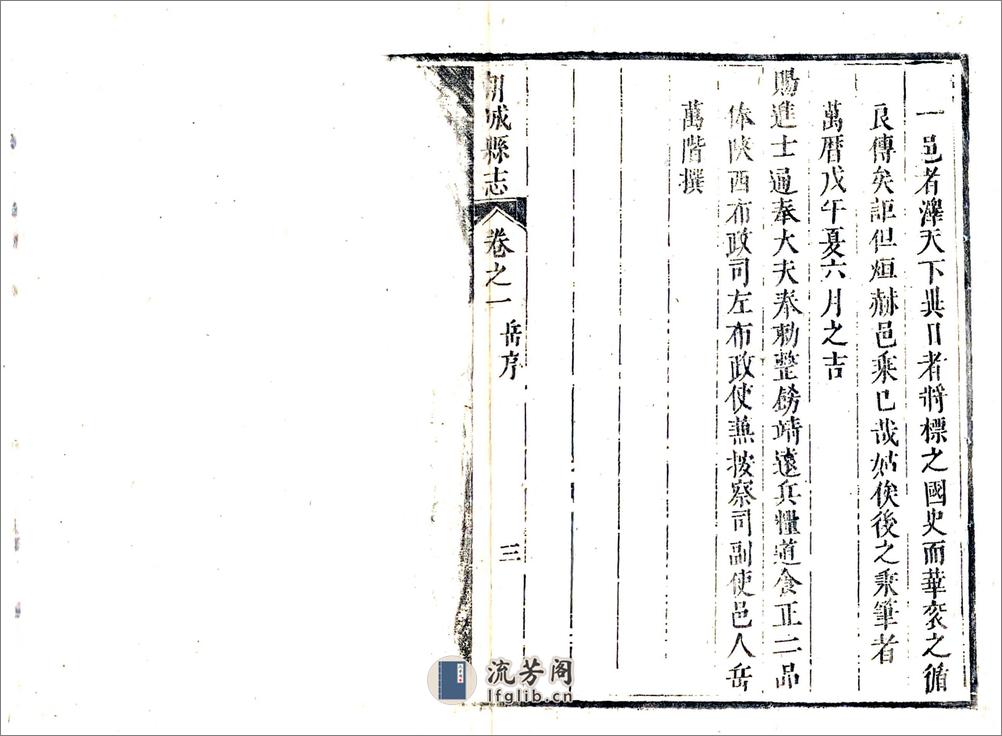 一邑者澤天下異日者將標之國史而華衮之循
良傳矣詎但烜赫邑乘已哉姑俟後之秉筆者
萬曆戊午夏六月之吉
賜進士通奉大夫奉勅整飭靖遠兵糧道食正二品
俸陝西布政司左布政使兼按察司副使邑人岳
萬階撰
朝城縣志 卷之一 岳序 三
流芳阁
lfglib.cn